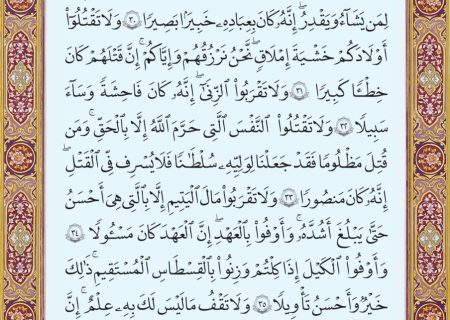 لِمَن يَشَآءُ وَيَقْدِرُ ۚ إِنَّهُۥ كَانَ بِعِبَادِهِۦ خَبِيرًۢا بَصِيرًا ٣٠ وَلَا تَقْتُلُوٓا۟
أَوْلَٰدَكُمْ خَشْيَةَ إِمْلَٰقٍ ۖ نَّحْنُ نَرْزُقُهُمْ وَإِيَّاكُمْ ۚ إِنَّ قَتْلَهُمْ كَانَ
خِطْـًٔا كَبِيرًا ٣١ وَلَا تَقْرَبُوا۟ ٱلزِّنَىٰٓ ۖ إِنَّهُۥ كَانَ فَٰحِشَةً وَسَآءَ
سَبِيلًا ٣٢ وَلَا تَقْتُلُوا۟ ٱلنَّفْسَ ٱلَّتِى حَرَّمَ ٱللَّهُ إِلَّا بِٱلْحَقِّ ۗ وَمَن
قُتِلَ مَظْلُومًا فَقَدْ جَعَلْنَا لِوَلِيِّهِۦ سُلْطَٰنًا فَلَا يُسْرِف فِّى ٱلْقَتْلِ ۖ
إِنَّهُۥ كَانَ مَنصُورًا ٣٣ وَلَا تَقْرَبُوا۟ مَالَ ٱلْيَتِيمِ إِلَّا بِٱلَّتِى هِىَ أَحْسَنُ
حَتَّىٰ يَبْلُغَ أَشُدَّهُۥ ۚ وَأَوْفُوا۟ بِٱلْعَهْدِ ۖ إِنَّ ٱلْعَهْدَ كَانَ مَسْـُٔولًا ٣٤
وَأَوْفُوا۟ ٱلْكَيْلَ إِذَا كِلْتُمْ وَزِنُوا۟ بِٱلْقِسْطَاسِ ٱلْمُسْتَقِيمِ ۚ ذَٰلِكَ
خَيْرٌ وَأَحْسَنُ تَأْوِيلًا ٣٥ وَلَا تَقْفُ مَا لَيْسَ لَكَ بِهِۦ عِلْمٌ ۚ إِنَّ